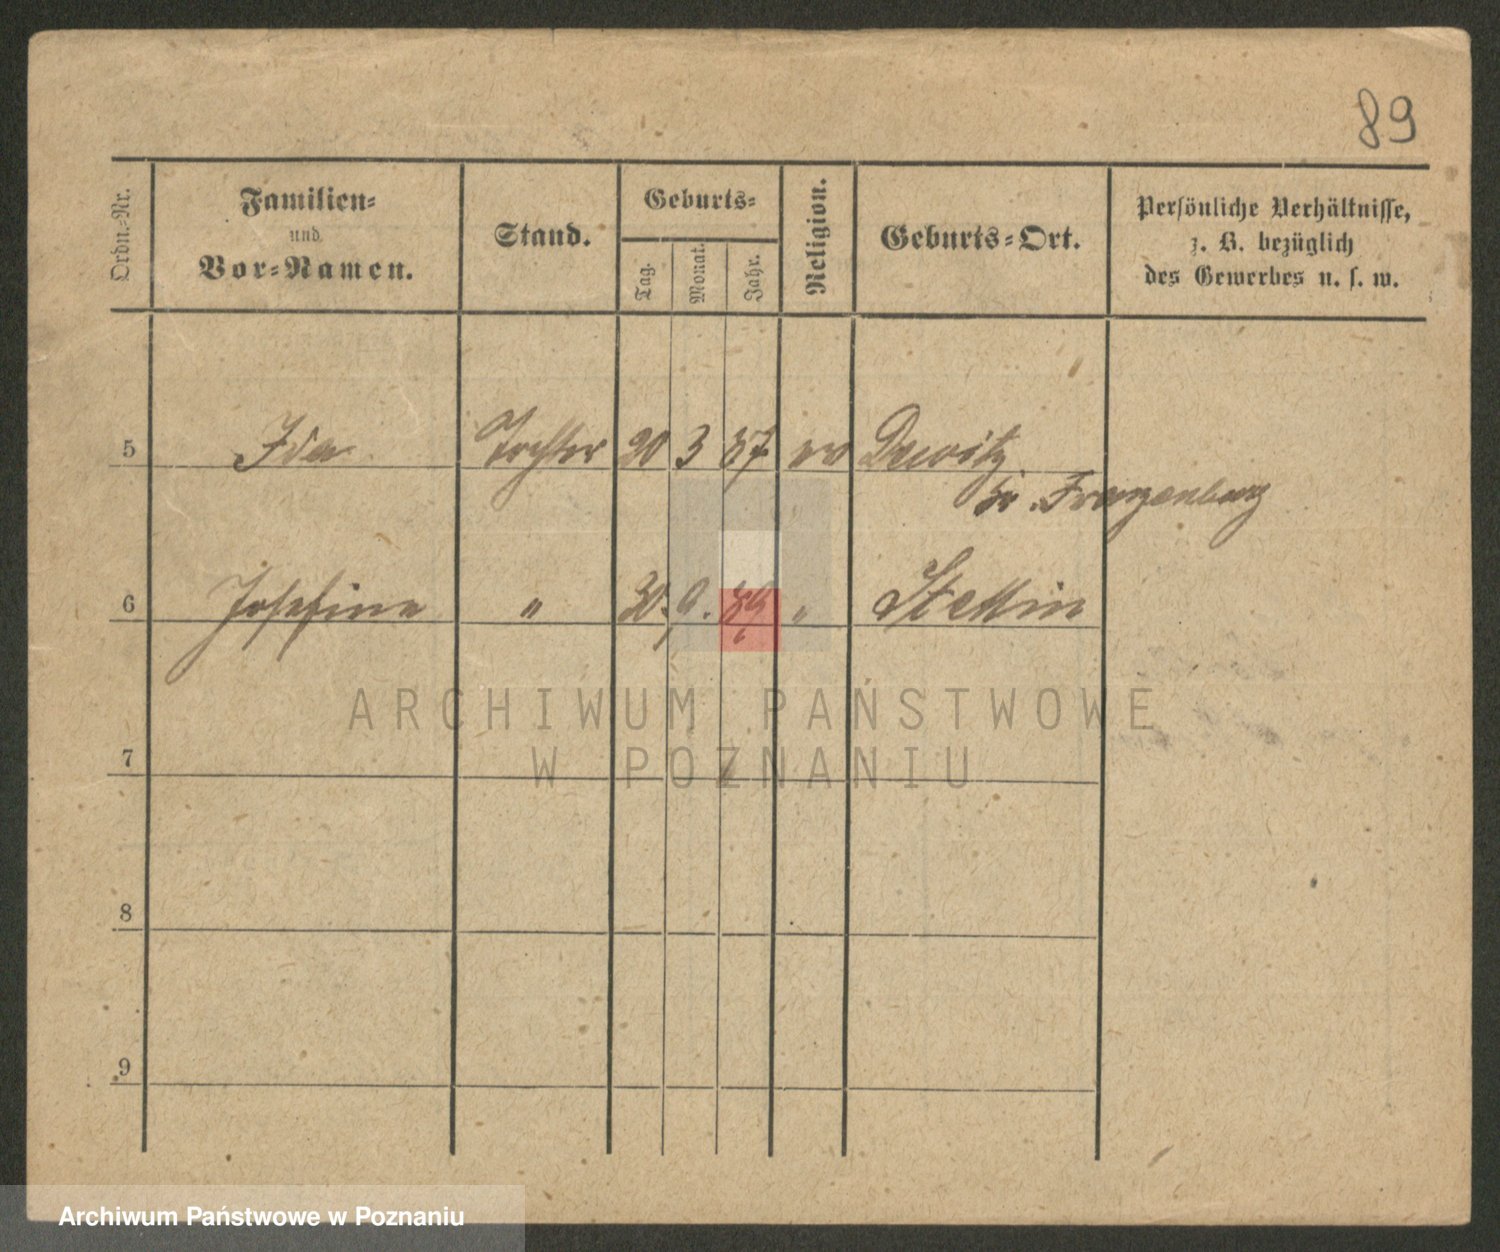 89
Ordn.-Nr.
Familien-
und
Vor-Namen.
Stand.
Geburts-
Tag.
Monat.
Jahr.
Religion.
Geburts-Ort.
Persönliche Verhältnisse,
z. B. bezüglich
des Gewerbes u. s. w.
5 Ida Tochter 20 3 87 ev
Kr. Franzenburg
6 Josefine " 30. 9. 89 " Stettin
7
8
9
ARCHIWUM PAŃSTWOWE
W POZNANIU
Archiwum Państwowe w Poznaniu